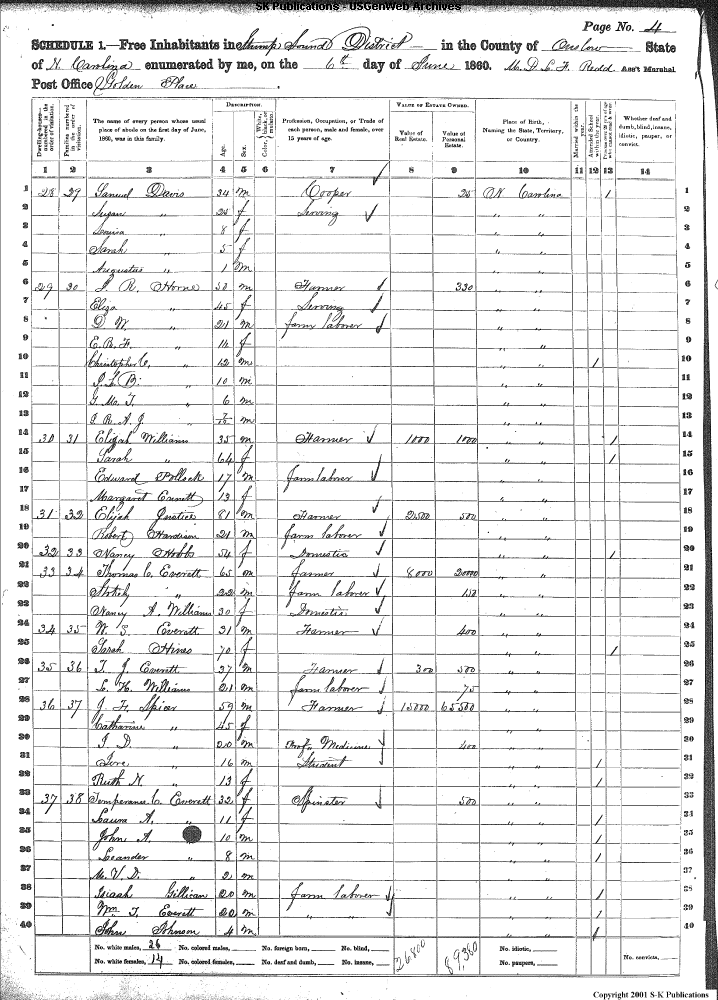 SK Publications - USGenWeb Archives
Page No. 4
SCHEDULE 1.—Free Inhabitants in Stump Sound District in the County of Onslow State
of N Carolina enumerated by me, on the 6th day of June 1860. Ass't Marshal
Post Office Golden Place
Dwelling-houses—numbered in the order of visitation.
Families numbered in the order of visitation.
The name of every person whose usual place of abode on the first day of June, 1860, was in this family.
DESCRIPTION.
Age.
Sex.
Color,
Profession, Occupation, or Trade of each person, male and female, over 15 years of age.
VALUE OF ESTATE OWNED.
Value of Real Estate.
Value of Personal Estate.
Place of Birth, Naming the State, Territory, or Country.
Married within the year.
Attended School within the year.
Whether deaf and dumb, blind, insane, idiotic, pauper, or convict.
1 2 3 4 5 6 7 8 9 10 11 12 13 14
1 28 29 Samuel Davis 34 m Cooper 25 N Carolina / 1
2 Susan " 25 f Serving " " 2
3 Louisa " 8 f " " 3
4 Sarah " 5 f " " 4
5 Augustus " 1 m " " 5
6 29 30 J. R. Horne 50 m Farmer 330 " " 6
7 Eliza " 45 f Serving " " 7
8 D. W. " 21 m farm laborer " " 8
9 E. R. F. " 14 f " " 9
10 Christopher C. " 12 m " " / 10
11 " 10 m " " 11
12 " 6 m " " 12
13 J. R. A. J. " m " " 13
14 30 31 Elijah Williams 35 m Farmer 1000 1000 " " / 14
15 Sarah " 64 f " " / 15
16 Edward Pollock 17 m farm laborer " " 16
17 Margaret Everett 13 f " " 17
18 31 32 Elijah Justice 81 m Farmer 2500 500 " " 18
19 Robert Hardison 21 m farm laborer " " 19
20 32 33 Nancy Hobbs 54 f Domestic " " / 20
21 33 34 Thomas C. Everett 65 m farmer 8000 20000 " " 21
22 " 22 m farm laborer 150 " " 22
23 Nancy A. Williams 30 f Domestic " " 23
24 34 35 W. S. Everett 31 m Farmer 400 " " 24
25 Sarah Hines 70 f " " / 25
26 35 36 T. J. Everett 37 m Farmer 300 500 " " 26
27 L. H. Williams 21 m farm laborer 75 " " 27
28 36 37 J. F. Spicer 59 m Farmer 15000 65500 " " 28
29 Catharine " 45 f " " 29
30 J. D. " 20 m Medicine 400 " " 30
31 " 16 m Student " " / 31
32 Ruth N. " 13 f " " / 32
33 37 38 Temperance C. Everett 32 f Spinster 500 " " 33
34 Laura A. " 11 f " " / 34
35 John A. " 10 m " " / 35
36 Leander " 8 m " " / 36
37 M. V. D. " 2 m " " 37
38 Isiaah Gillican 20 m farm laborer " " / 38
39 Wm T. Everett 22 m " " " " / 39
40 John Johnson 4 m " " / 40
No. white males, 26 No. colored males, No. foreign born, No. blind, 26800 89,360 No. idiotic, No. convicts,
No. white females, 14 No. colored females, No. deaf and dumb, No. insane, No. paupers,
Copyright 2001 S-K Publications